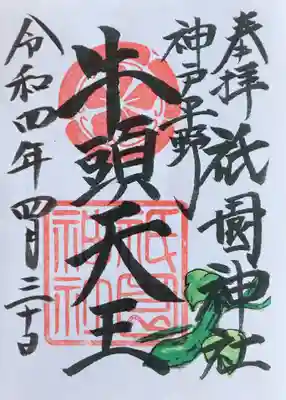 奉拝
祇園神社
神戸平野
牛頭天王
令和四年四月三十日
祇園神社